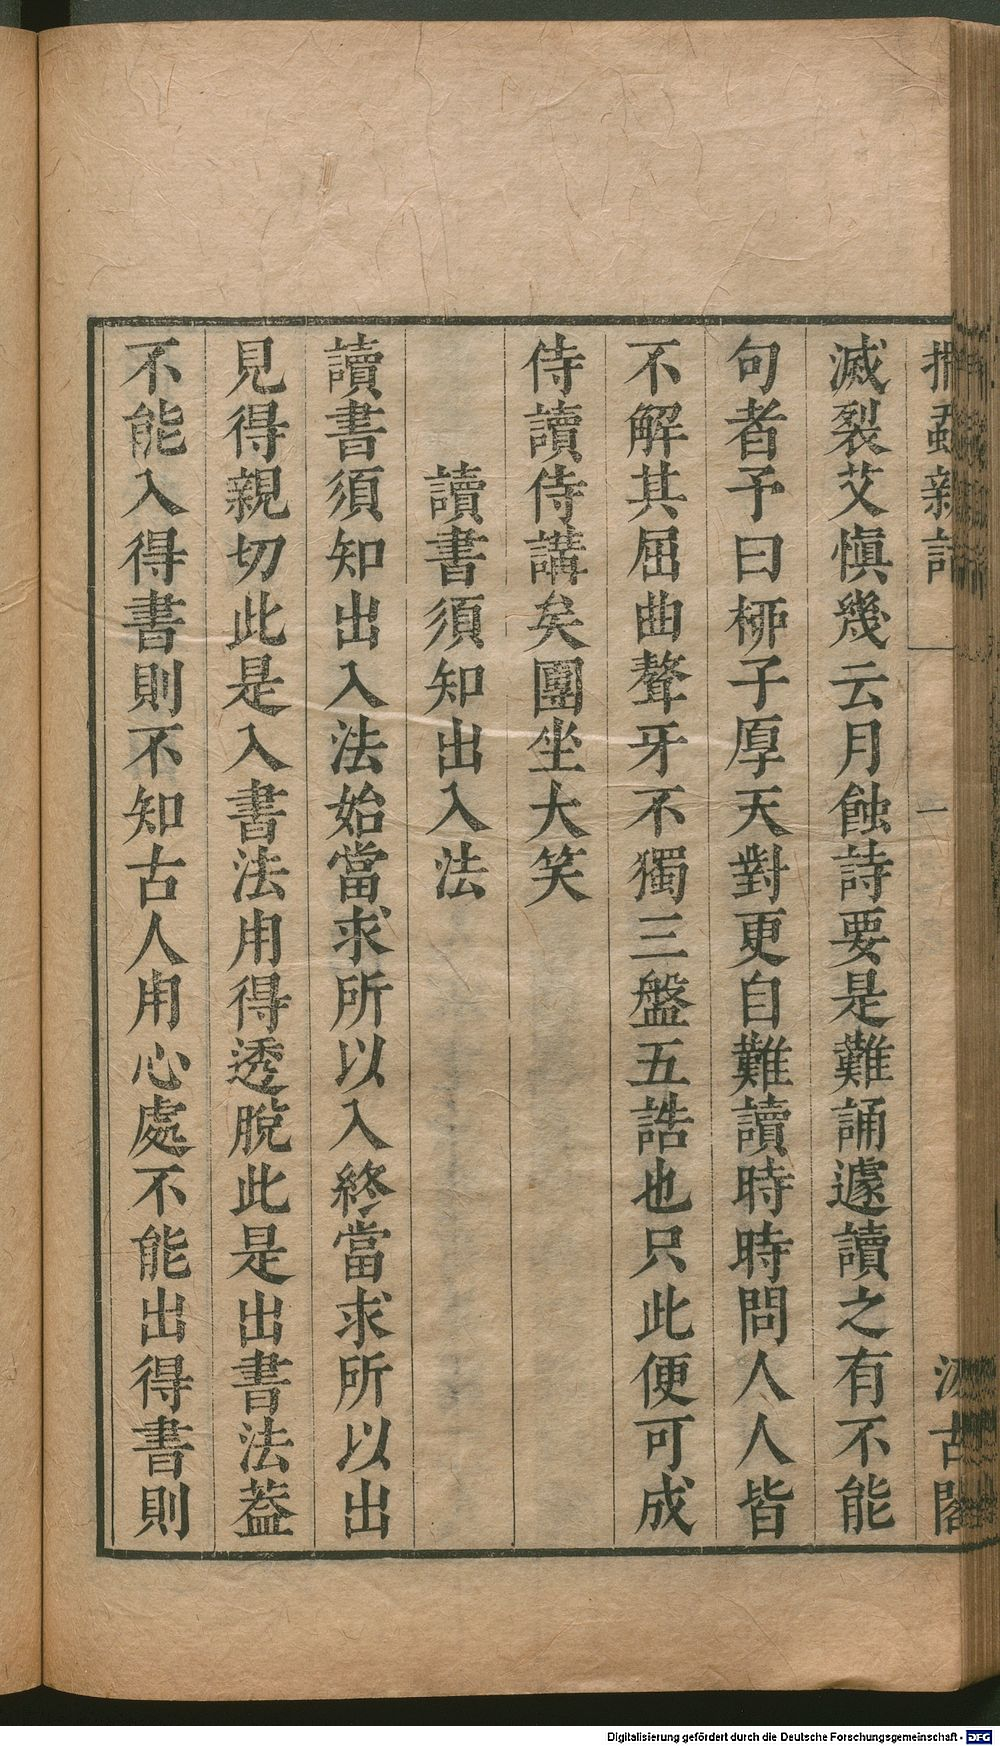 捫蝨新話 一 汲古閣
滅裂艾慎幾云月蝕詩要是難誦遽讀之有不能
句者予曰桺子厚天對更自難讀時時問人人皆
不解其屈曲聱牙不獨三盤五誥也只此便可成
侍讀侍講矣團坐大笑
讀書須知出入法
讀書須知出入法始當求所以入終當求所以出
見得親切此是入書法用得透脫此是出書法葢
不能入得書則不知古人用心處不能出得書則
Digitalisierung gefördert durch die Deutsche Forschungsgemeinschaft - DFG